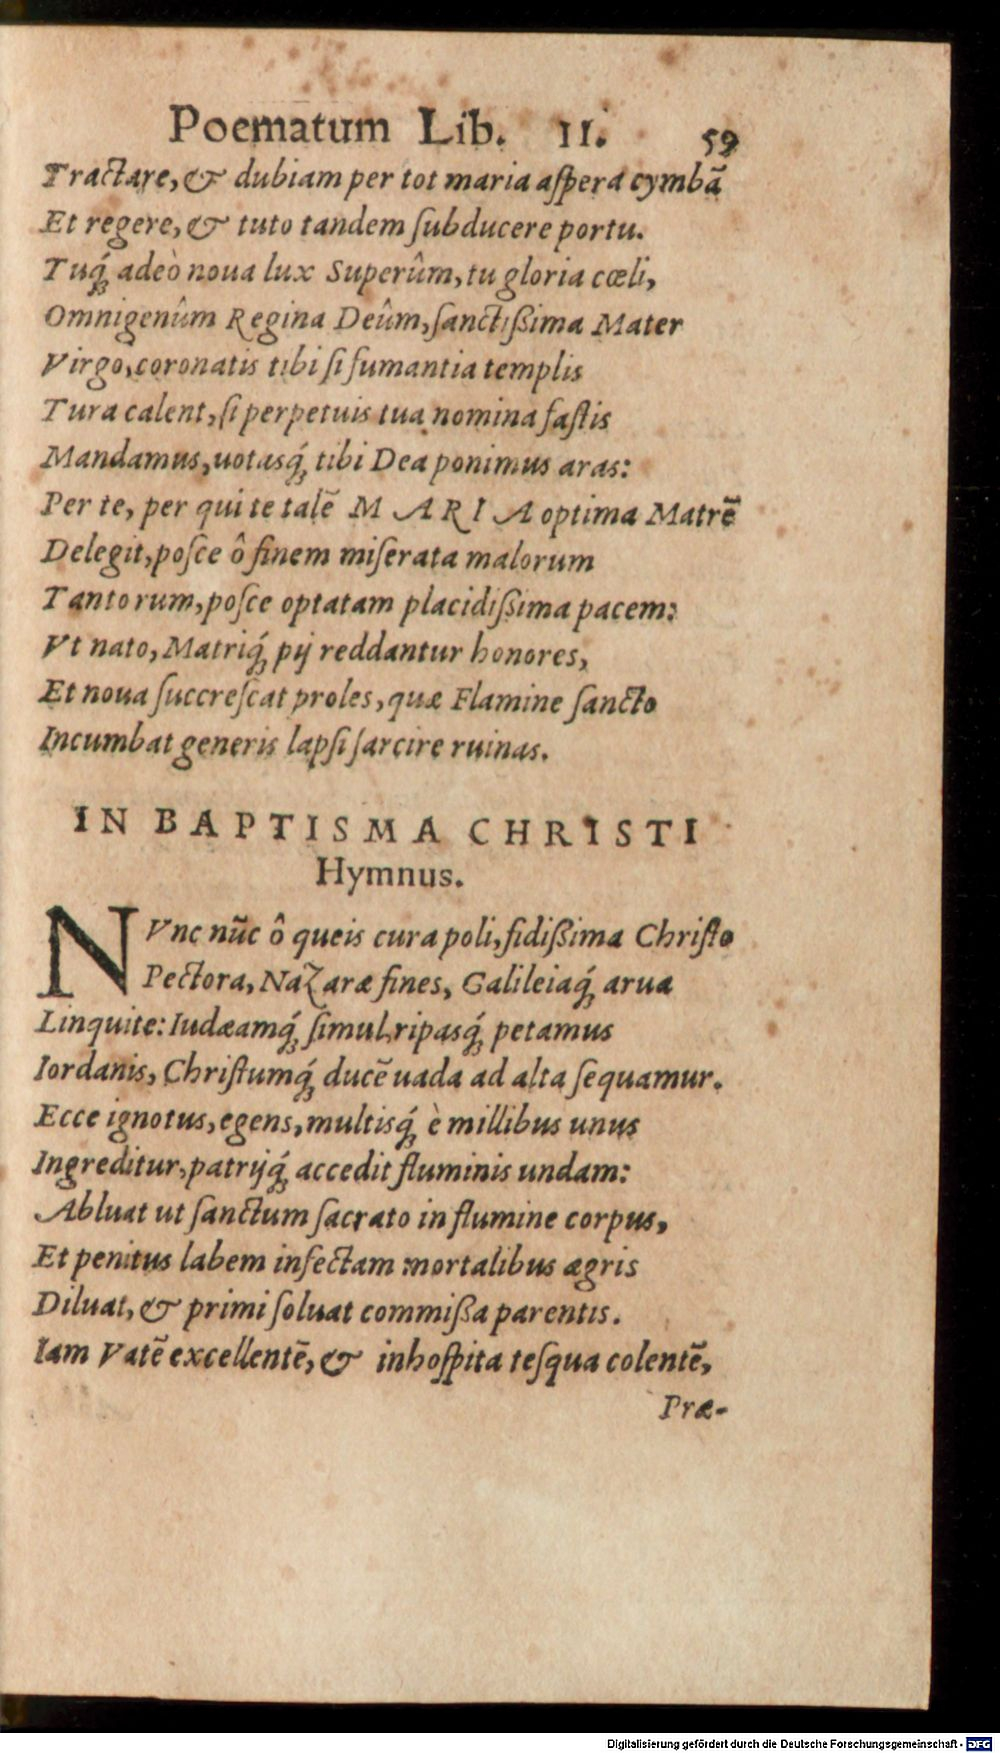 Poematum Lib. II. 59
Tractare, & dubiam per tot maria aſpera cymbā
Et regere, & tuto tandem ſubducere portu.
Tuq́; adeò noua lux Superûm, tu gloria cœli,
Omnigenûm Regina Deûm, ſanctißima Mater
Virgo, coronatis tibi ſi fumantia templis
Tura calent, ſi perpetuis tua nomina faſtis
Mandamus, uotasq́; tibi Dea ponimus aras:
Per te, per qui te talē MARIA optima Matrē
Delegit, poſce ô finem miſerata malorum
Tantorum, poſce optatam placidißima pacem:
Vt nato, Matriq́; pij reddantur honores,
Et noua ſuccreſcat proles, quæ Flamine ſancto
Incumbat generis lapſi ſarcire ruinas.
IN BAPTISMA CHRISTI
Hymnus.
NVnc nūc ô queis cura poli, fidißima Chriſto
Pectora, Nazaræ fines, Galileiaq́; arua
Linquite: Iudæamq́; ſimul, ripasq́; petamus
Iordanis, Chriſtumq́; ducē uada ad alta ſequamur.
Ecce ignotus, egens, multisq́; è millibus unus
Ingreditur, patrijq́; accedit fluminis undam:
Abluat ut ſanctum ſacrato in flumine corpus,
Et penitus labem infectam mortalibus ægris
Diluat, & primi ſoluat commißa parentis.
Iam Vatē excellentē, & inhoſpita teſqua colentē,
Præ-
Digitalisierung gefördert durch die Deutsche Forschungsgemeinschaft - DFG